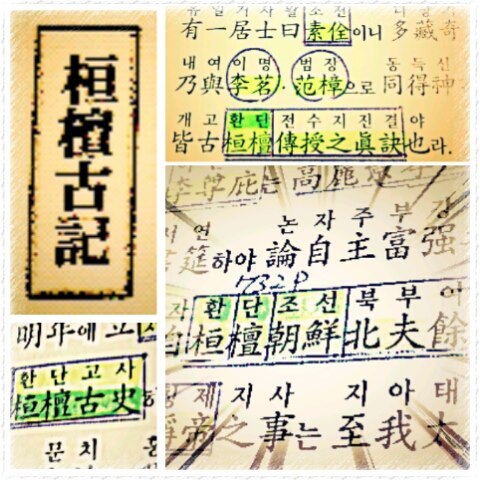 桓檀古記
소전
有一居士曰素佺이니 多藏奇
내여이명 범장 동득신
乃與李茗·范樟으로 同得神
개고환단전수지진결야
皆古桓檀傳授之眞訣也라.
환단고사
桓檀古史
문치
연 논자주부강
筵하야 論自主富强
732P
환단조선북부여
桓檀朝鮮北夫餘
제지사 지아태
帝之事는 至我太